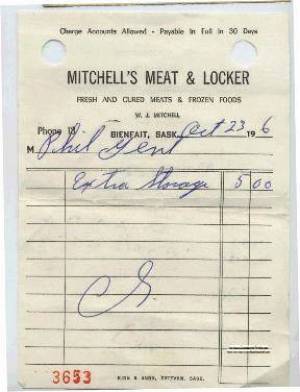 Charge Accounts Allowed - Payable In Full In 30 Days
MITCHELL'S MEAT & LOCKER
FRESH AND CURED MEATS & FROZEN FOODS
W. J. MITCHELL
Phone BIENFAIT, SASK. Oct 23 19 6
M Phil
Extra Storage 5 00
3653